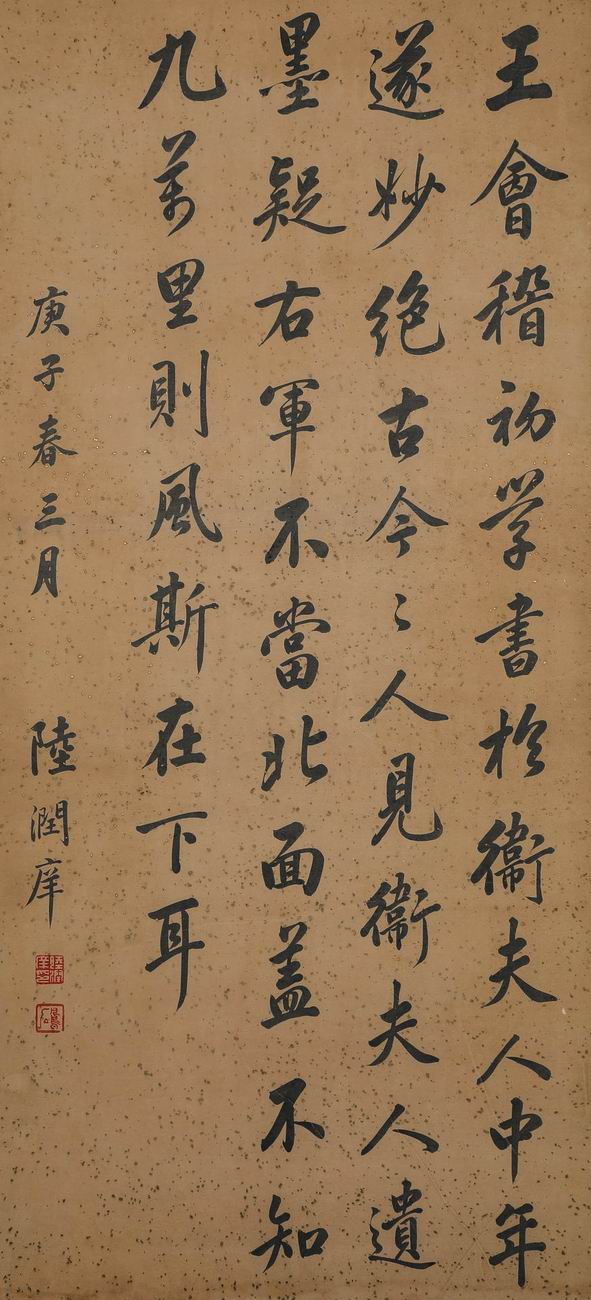 王會稽初学書於衞夫人中年
遂妙絶古今々人見衞夫人遺
墨疑右軍不當北面盖不知
九萬里則風斯在下耳
庚子春三月
陸潤庠